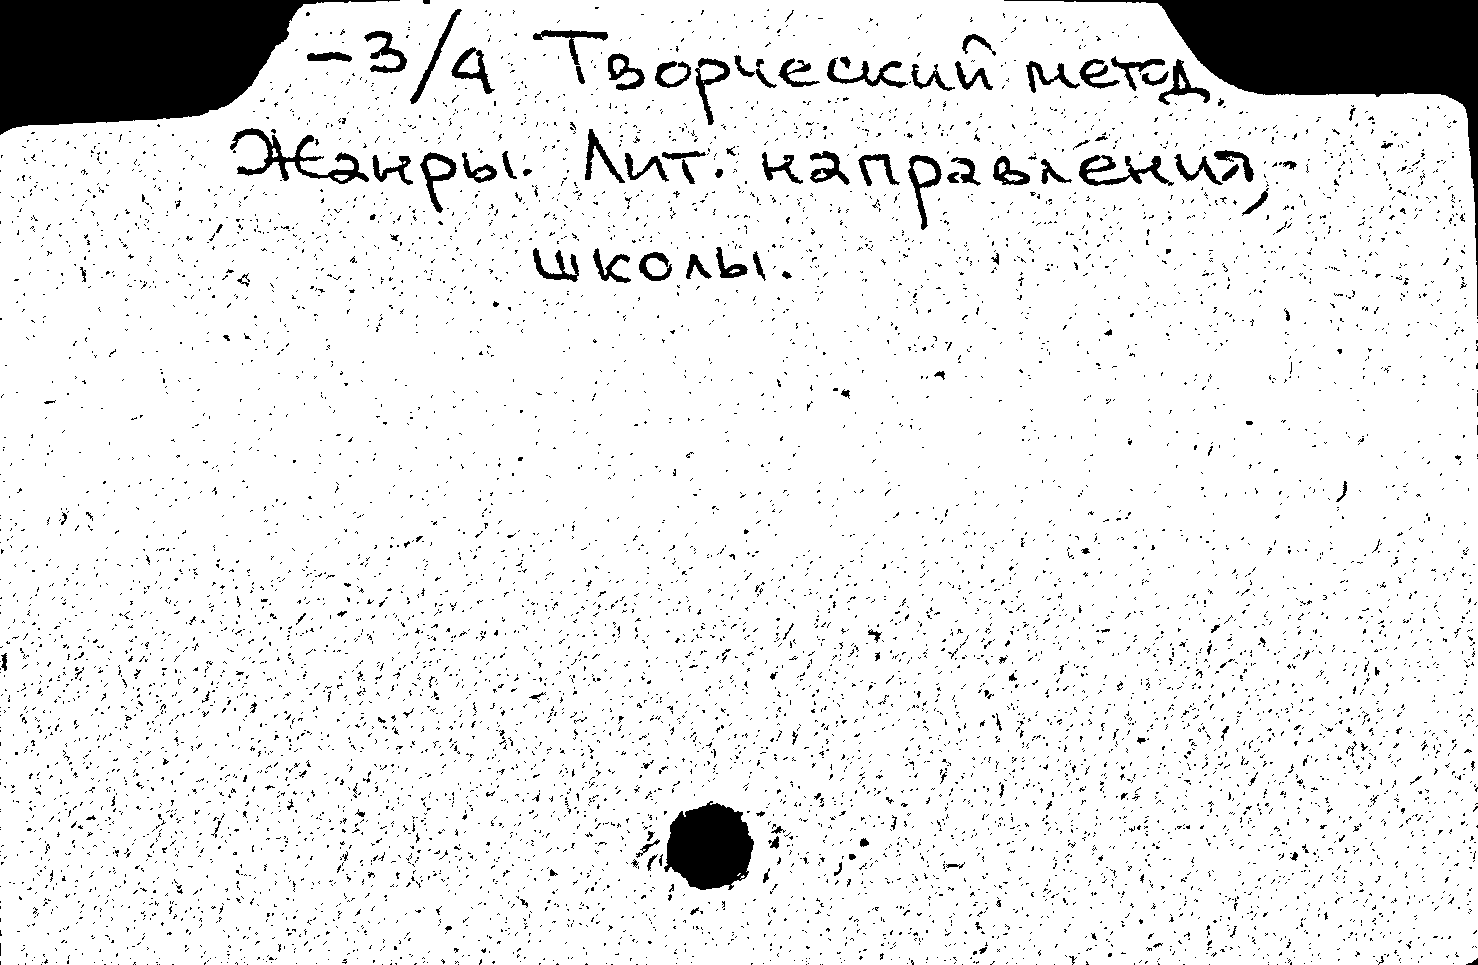 -3/4 Творческий метод.
Жанры. Лит. направления,
школы.